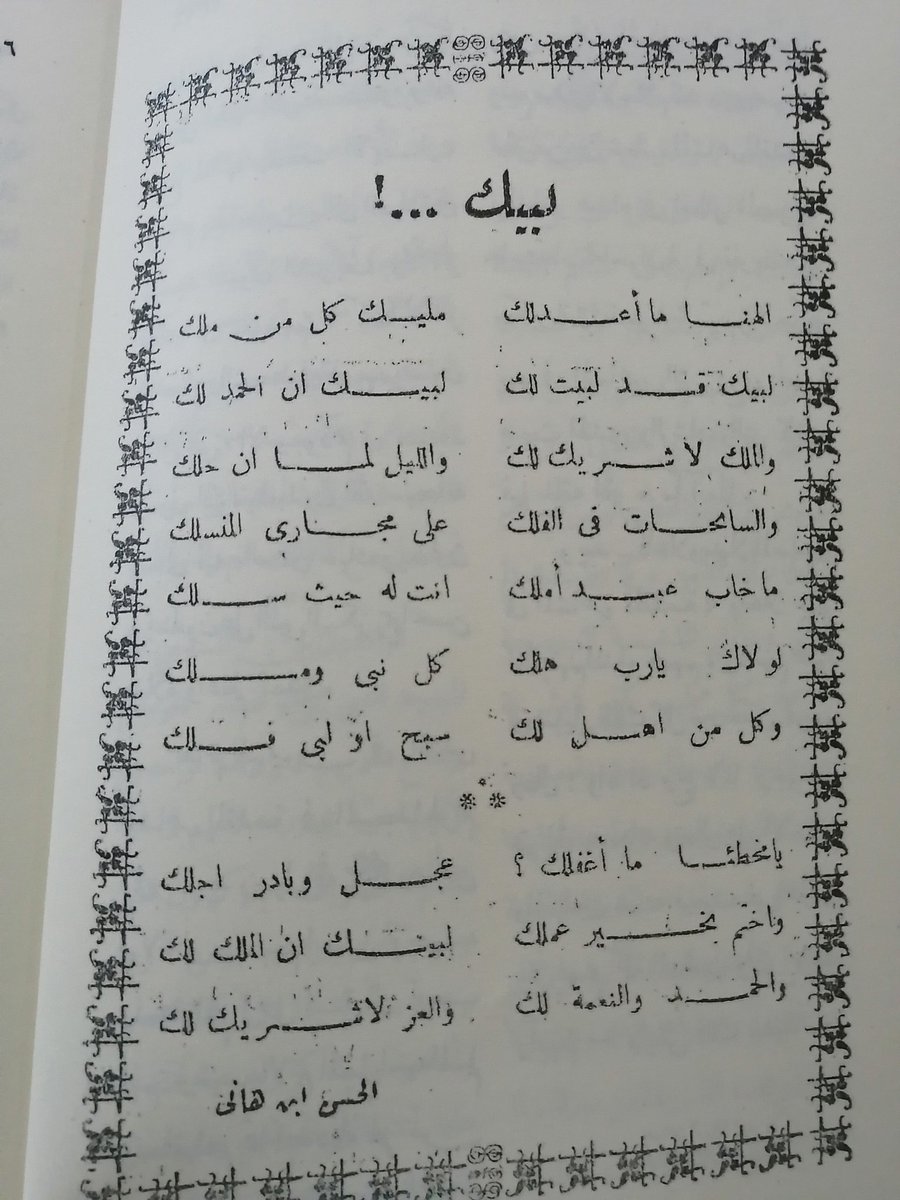 ٦
لبيك ...!
الهنا ما أعدلك مليك كل من ملك
لبيك قد لبيت لك لبيك ان الحمد لك
والملك لا شريك لك والليل لما ان حلك
والسابحات فى الفلك على مجارى المنسلك
ما خاب عبد أملك انت له حيث سلك
لولاك يارب هلك كل نبى وملك
وكل من اهل لك سبح او لبى فلك
***
يا مخطئا ما أغفلك ؟ عجل وبادر اجلك
واختم بخير عملك لبيك ان الملك لك
والحمد والنعمة لك والعز لا شريك لك
الحسن ابن هانى